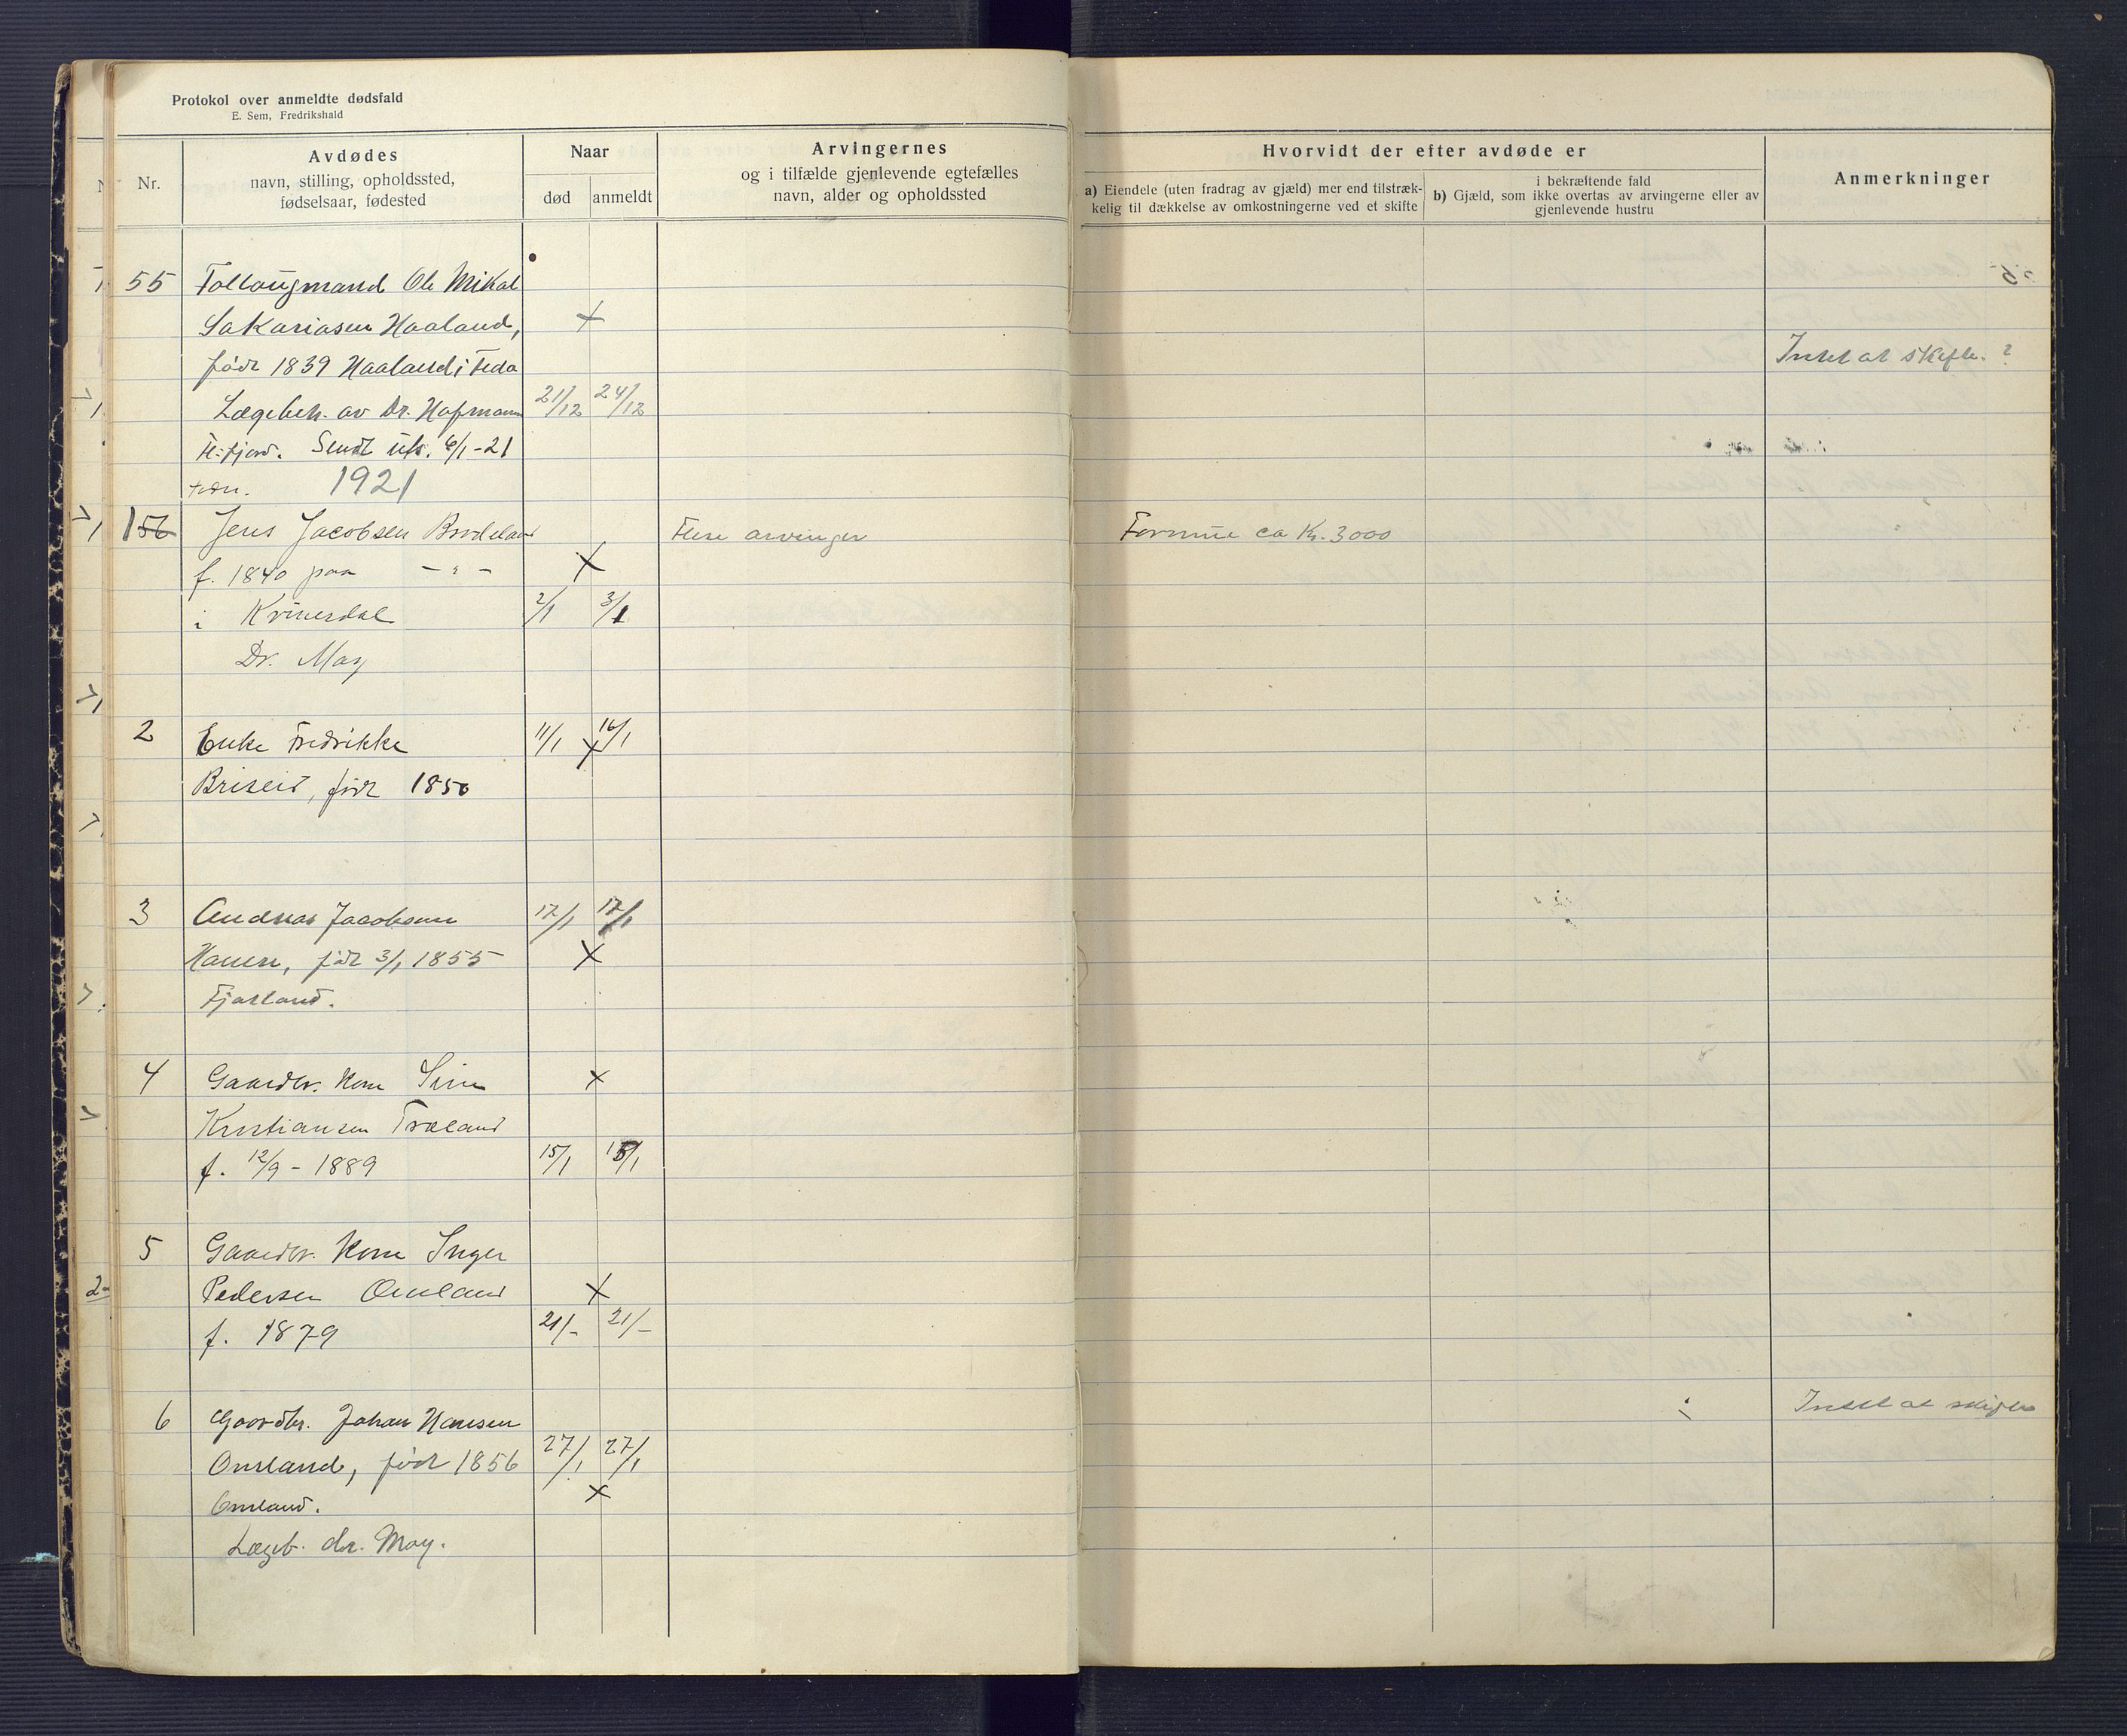 Protokol over anmeldte dødsfald
E. Sem, Fredrikshald
Nr.
Avdødes
navn, stilling, opholdssted,
fødselsaar, fødested
Naar
død
anmeldt
Arvingernes
og i tilfælde gjenlevende egtefælles
navn, alder og opholdssted
Hvorvidt der efter avdøde er
a) Eiendele (uten fradrag av gjæld) mer end tilstræk-
kelig til dækkelse av omkostningerne ved et skifte
i bekræftende fald
b) Gjæld, som ikke overtas av arvingerne eller av
gjenlevende hustru
Anmerkninger
55 Ole Mikal
Sakariasen Haaland,
født 1839 Haaland i Feda
Intet at skifte. ?
Lægebeh. av Dr. Hofmann 21/12 24/12
F.fjord. Sendt 6/1-21
1921
1 56 Jens Jacobsen Flere arvinger Formue ca Kr. 3000
f. 1840 paa - " -
i Kvinesdal 2/1 3/1
Dr. May
2 Enke Fredrikke 11/1 14/1
Briseid, født 1850
3 Andreas Jacobsen 17/1 17/1
født 3/1 1855
Fjarland.
4 Gaardbr. Kone
Kristiansen Træland
f. 12/9 - 1889 15/1 15/1
5 Gaardbr. Kone Inger
Pedersen Omland
f. 1879 21/- 21/-
6 Gaardbr. Johan Hansen Intet at skifte
Omland, født 1856 27/1 27/1
Omland.
Lægeb. dr. May.